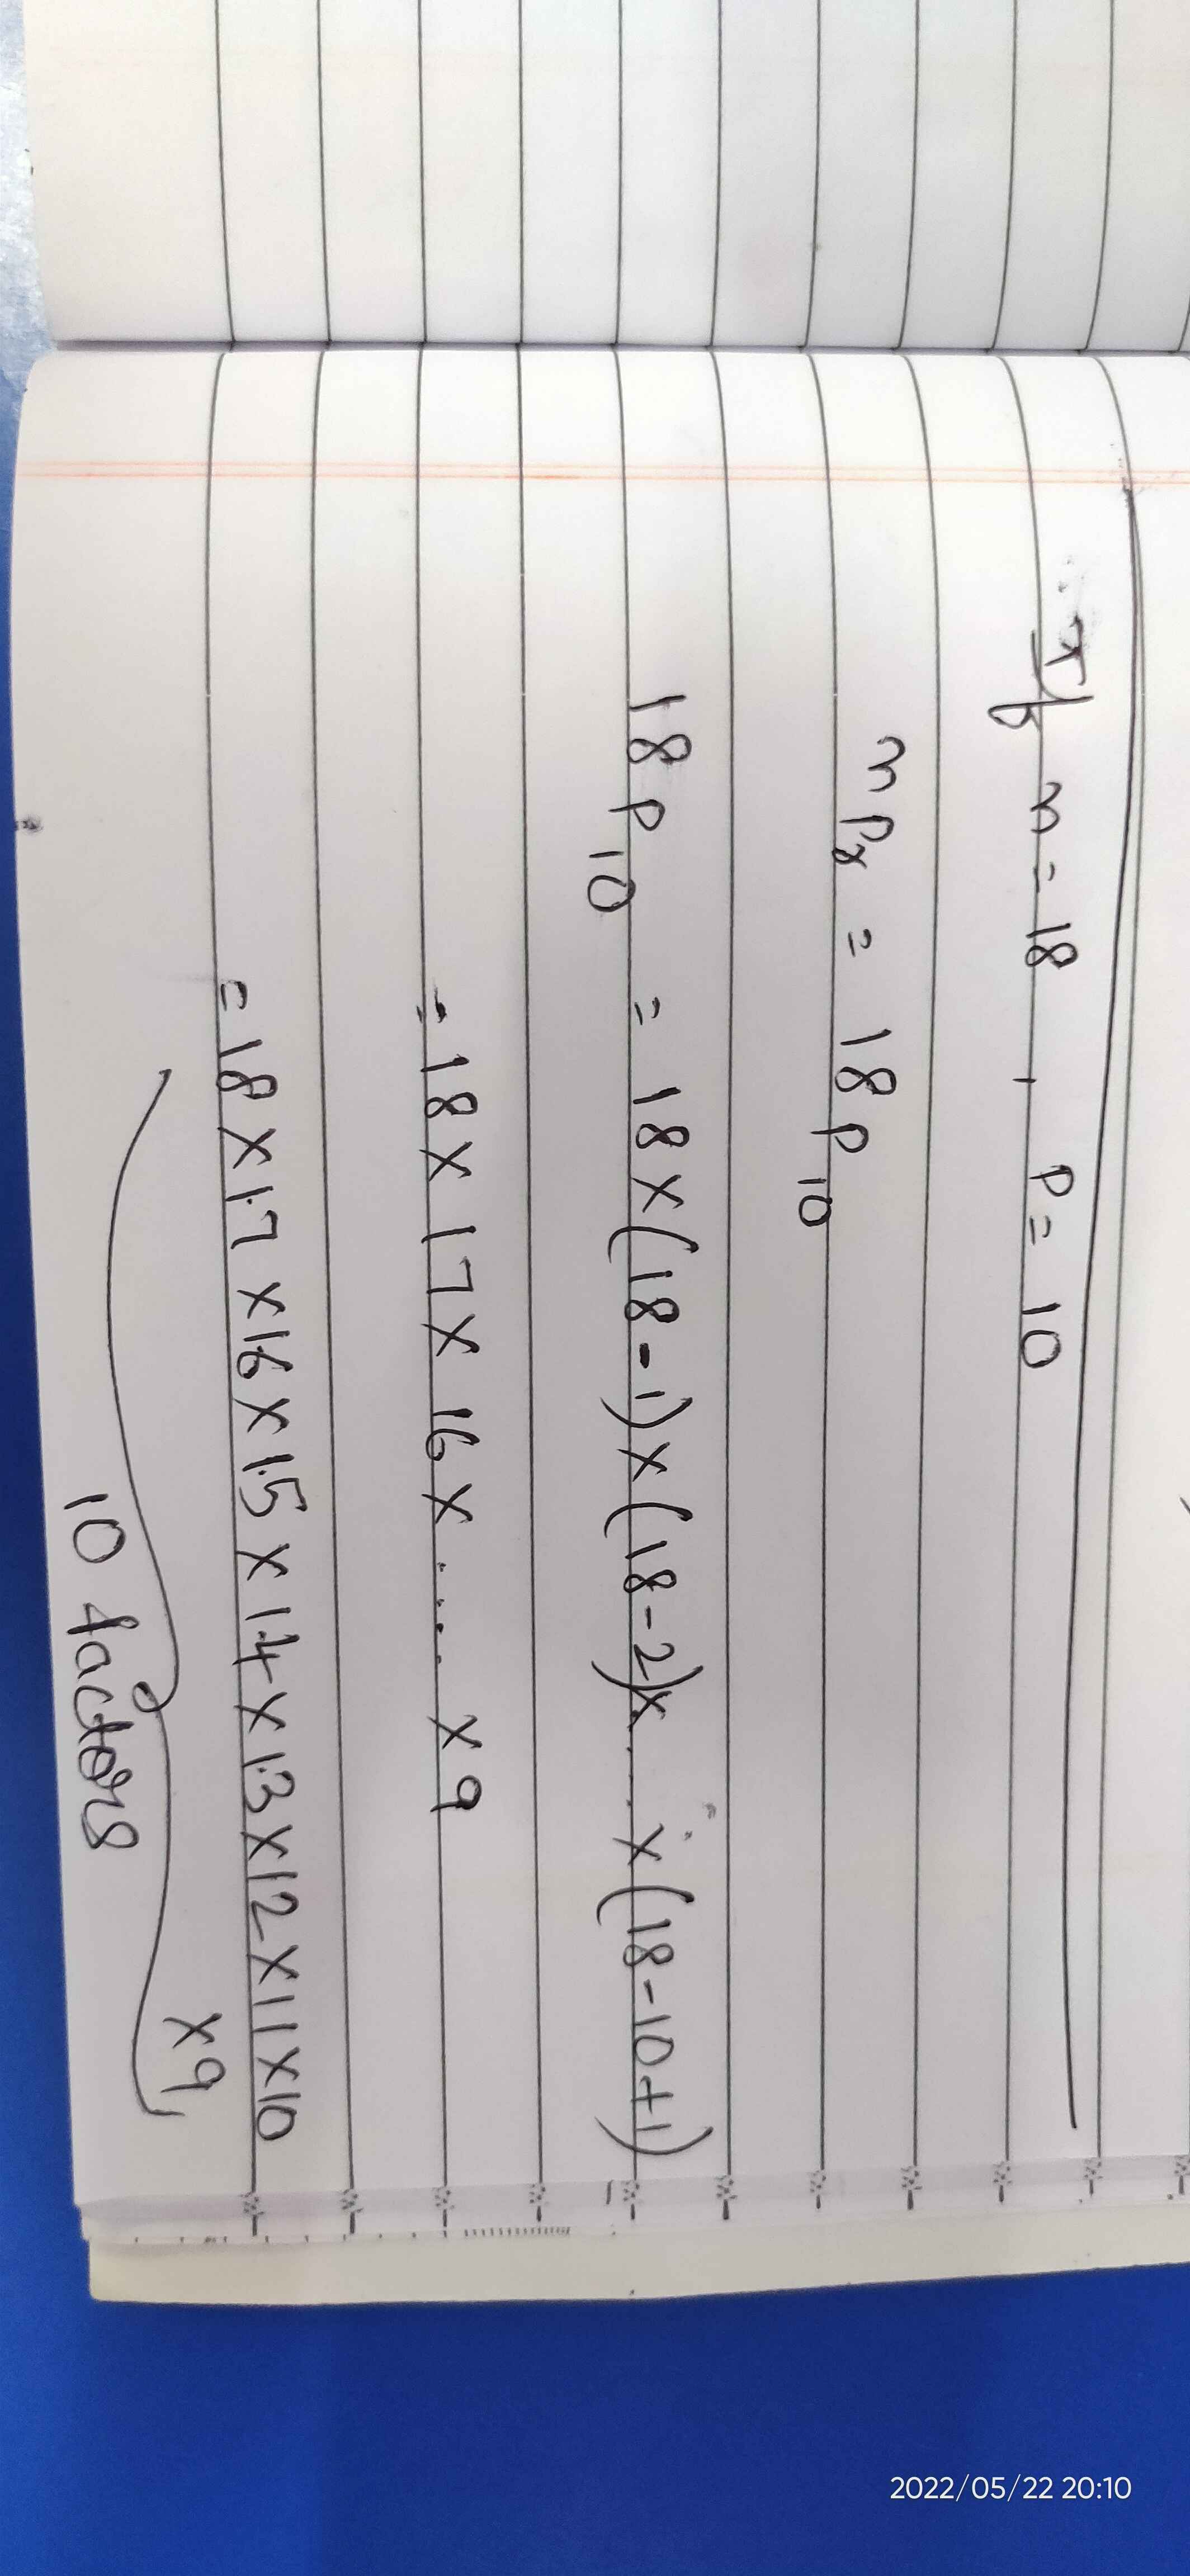 If n = 18 , P = 10
nPr = 18P10
18P10 = 18 x (18-1) x (18-2) x .... x (18-10+1)
= 18 x 17 x 16 x ..... x 9
= 18 x 17 x 16 x 15 x 14 x 13 x 12 x 11 x 10
x 9
10 factors
2022/05/22 20:10